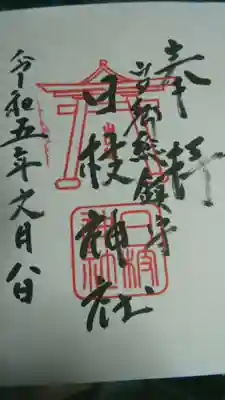 奉拝
総鎮守
日枝神社
日枝神社
令和五年六月八日